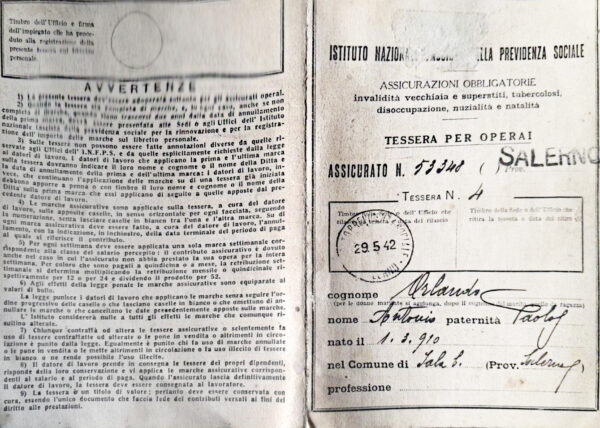 Timbro dell'Ufficio e firma
dell'impiegato che ha proce-
duto alla registrazione della
presente tessera sul libretto
personale.
AVVERTENZE
1) La presente tessera deve essere adoperata soltanto per gli assicurati operai.
2) Quando la tessera
completa di marche,
della prima marca,
nazionale fascista della previdenza sociale per la rinnovazione e per la registra-
zione dell'importo delle marche sul libretto personale.
3) Sulle tessere non possono essere fatte annotazioni diverse da quelle ri-
servate agli Uffici dell'I.N.F.P.S. e da quelle esplicitamente richieste dalla legge
ai datori di lavoro. I datori di lavoro che applicano la prima e l'ultima marca
sulla tessera dovranno indicare il loro nome e cognome o il nome della Ditta e
la data di annullamento della prima e dell'ultima marca; i datori di lavoro, in-
vece, che continuano l'applicazione delle marche su di una tessera già iniziata
devono apporre a penna o con timbro il loro nome e cognome o il nome della
Ditta sulla prima marca che essi applicano di seguito a quelle apposte dal pre-
cedente datore di lavoro.
4) Le marche assicurative sono applicate sulla tessera, a cura del datore
di lavoro, sulle apposite caselle, in senso orizzontale per ogni facciata, seguendo
la numerazione, senza lasciare caselle in bianco tra l'una e l'altra marca. Su di
ogni marca assicurativa deve essere fatto, a cura del datore di lavoro, l'annulla-
mento, con la indicazione, in inchiostro, della data terminale del periodo di paga
al quale si riferisce il contributo.
5) Per ogni settimana deve essere applicata una sola marca settimanale cor-
rispondente alla classe del salario percepito: il contributo assicurativo è dovuto
anche nel caso in cui l'assicurato non abbia prestato la sua opera per la intera
settimana. Per coloro che sono pagati a quindicina o a mese, la retribuzione set-
timanale si determina moltiplicando la retribuzione mensile o quindicinale ri-
spettivamente per 12 o per 24 e dividendo il prodotto per 52.
6) Agli effetti della legge penale le marche assicurative sono equiparate ai
valori di bollo.
La legge punisce i datori di lavoro che applicano le marche senza seguire l'or-
dine progressivo delle caselle o che lasciano caselle in bianco o che omettono di an-
nullare le marche o che cancellano le date precedentemente apposte sulle marche.
L'Istituto considererà nulle a tutti gli effetti le marche che comunque ri-
sultino alterate.
7) Chiunque contraffà od altera le tessere assicurative o scientemente fa
uso di tessere contraffatte od alterate o le pone in vendita o altrimenti in circo-
lazione è punito dalla legge. Egualmente è punito chi fa uso di marche annullate
o le pone in vendita o le mette altrimenti in circolazione o fa uso illecito di tessere
in bianco o ne rende possibile l'uso illecito.
8) Il datore di lavoro prende in consegna le tessere dei propri dipendenti,
risponde della loro conservazione e vi applica le marche assicurative corrispon-
denti al salario e al periodo di paga. Quando l'assicurato lascia definitivamente
il datore di lavoro, la tessera deve essere consegnata al lavoratore.
9) La tessera è un titolo di valore; pertanto deve essere conservata con
cura, essendo l'unico documento che faccia fede dei contributi versati ai fini del
diritto alle prestazioni.
ISTITUTO NAZIONALE FASCISTA DELLA PREVIDENZA SOCIALE
ASSICURAZIONI OBBLIGATORIE
invalidità vecchiaia e superstiti, tubercolosi,
disoccupazione, nuzialità e natalità
TESSERA PER OPERAI
ASSICURATO N. 53348 ( ) Prov. SALERNO
TESSERA N. 4
Timbro della Sede o dell'Ufficio che ri-
tira la tessera e data del ritiro
29.5.42
cognome Orlando
nome Antonio paternità Paolo
nato il 1.3.910
nel Comune di Sala C. (Prov. Salerno)
professione